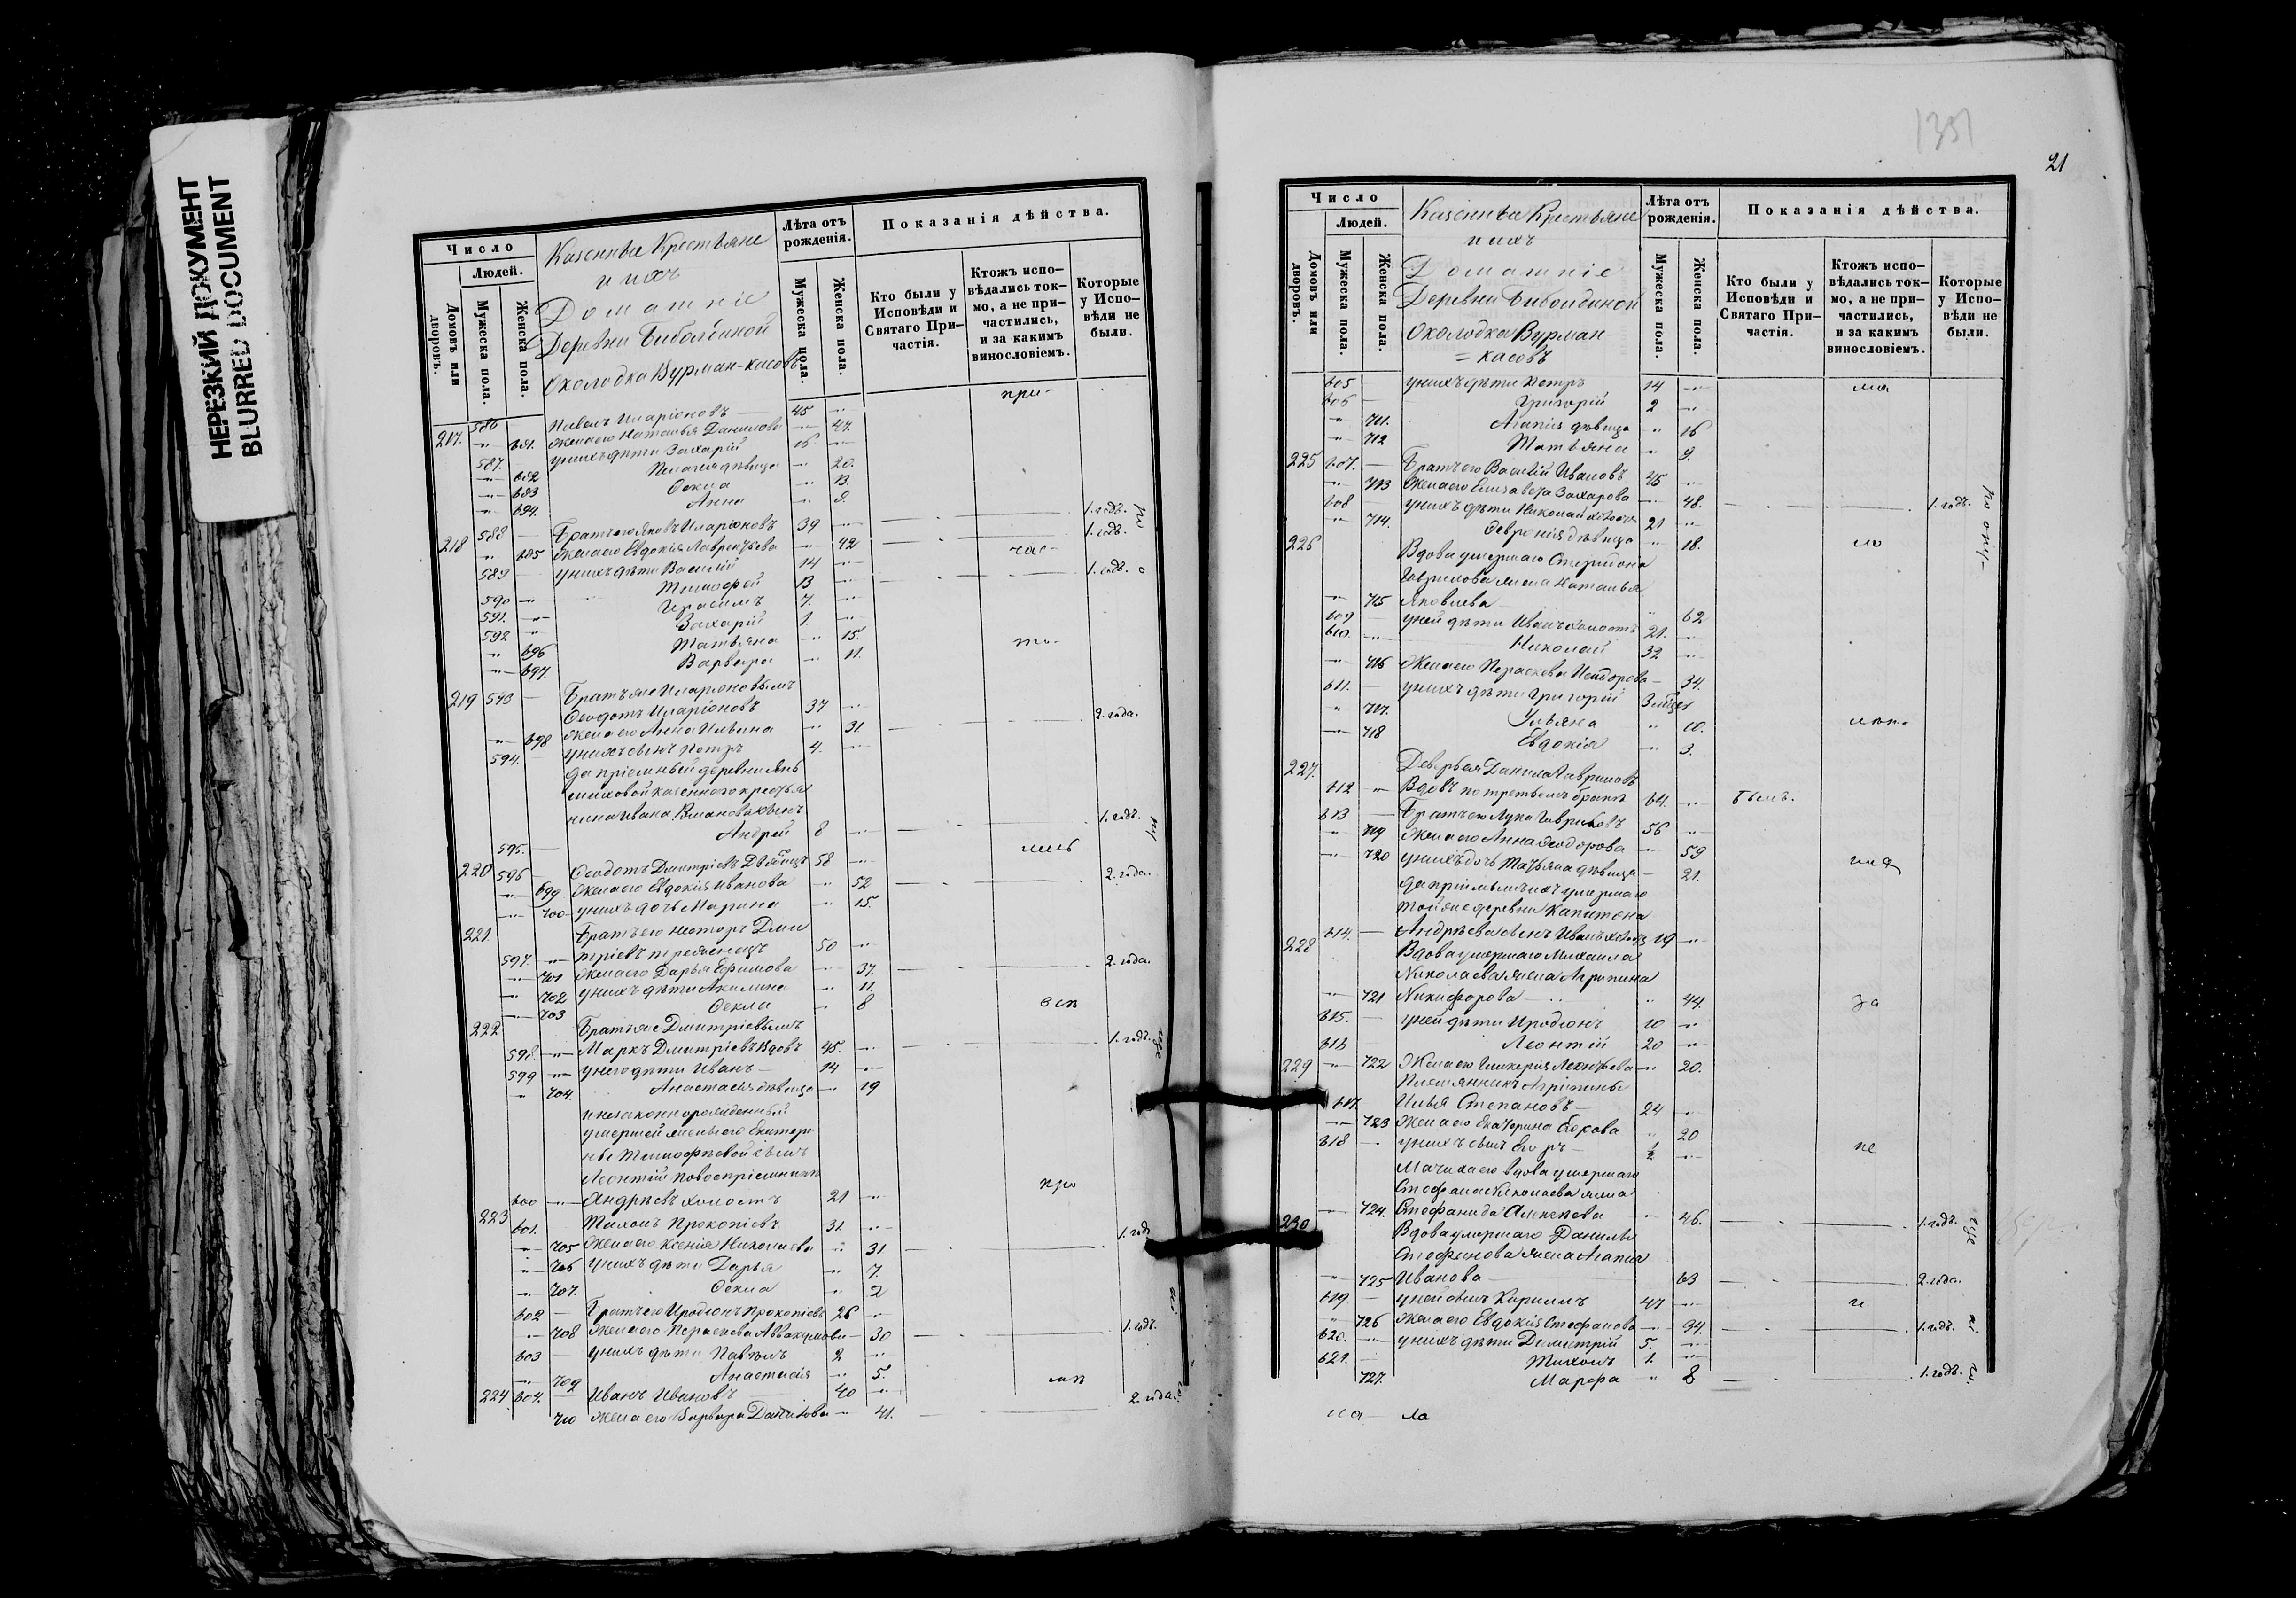 НЕРЕЗКИЙ ДОКУМЕНТ
BLURRED DOCUMENT
Число
Людей.
Домовъ или дворовъ.
Мужеска пола.
Женска пола.
Казенные Крестьяне
и ихъ
Домашніе
Деревни
Околодка Вурман-касовъ
Лѣта отъ рожденія.
Мужеска пола.
Женска пола.
Показанія дѣйства.
Кто были у Исповѣди и Святаго При-частія.
Ктожъ испо-вѣдались ток-мо, а не при-частились, и за какимъ винословіемъ.
Которые у Испо-вѣди не были.
при-
217. 586 Павелъ Иларіоновъ 45
681. Жена его Наталья Данилова 47.
587. у нихъ дѣти Захарій 16
682 Пелагея дѣвица 20.
683 Ѳекла 13.
684. Анна 9.
218 588 Братъ его Яковъ Иларіоновъ 39 1. годъ.
685 Жена его Евдокія Лаврентьева 42 1. годъ.
час-
589 у нихъ дѣти Василій 14 1. годъ.
590 Тимофей 13
591. Герасимъ 7.
592 Захарій 1.
696 Татьяна 15.
697. Варвара 11.
219 593 Братъ же Иларіоновымъ
Ѳеодотъ Иларіоновъ 37
698 Жена его Анна Ильина 31 2. года.
594. у нихъ сынъ Петръ 4.
да пріемный деревни
казеннаго крестья
нина Ивана сынъ
595. Андрей 8 1. годъ.
220 596 Ѳеодотъ Дмитріевъ 58
699 Жена его Евдокія Иванова 52 2. года.
700 у нихъ дочь Марина 15.
221. Братъ его Несторъ Дми
597. тріевъ 50
701 Жена его Дарья Ефимова 37. 2. года.
702 у нихъ дѣти Акилина 11.
703 Ѳекла 8
222 Братъ же Дмитріевымъ
598. Маркъ Дмитріевъ Вдовъ 45. 1. годъ.
599 у него дѣти Иванъ 14
704. Анастасія дѣвица 19
и незаконнорожденный
умершей жены его Екатери
ны Тимофѣевой сынъ
Леонтій по воспріемникѣ
600 Андреевъ холостъ 21
223 601. Тихонъ Прокопіевъ 31.
705 Жена его Ксенія Николаева 31 1. годъ
706 у нихъ дѣти Дарья 7.
707. Ѳекла 2
602 Братъ его Иродіонъ Прокопіевъ 26
708 Жена его Параскева Аввакумова 30 1. годъ.
603 у нихъ дѣти Павелъ 2
709 Анастасія 5.
224 604. Иванъ Ивановъ 40
710 Жена его Варвара Данилова 41. 2 года.
1351
21
Число
Людей.
Домовъ или дворовъ.
Мужеска пола.
Женска пола.
Казенные Крестьяне
и ихъ
Домашніе
Деревни
Околодка Вурман-
=касовъ
Лѣта отъ рожденія.
Мужеска пола.
Женска пола.
Показанія дѣйства.
Кто были у Исповѣди и Святаго При-частія.
Ктожъ испо-вѣдались ток-мо, а не при-частились, и за какимъ винословіемъ.
Которые у Испо-вѣди не были.
605 у нихъ дѣти Петръ 14
606 Григорій 2
711. Агапія дѣвица 16
712 Татьяна 9.
225 607. Братъ его Василій Ивановъ 45
713 Жена его Елизавета Захарова 48.
608 у нихъ дѣти Николай холостъ 21 1. годъ.
714. Февронія дѣвица 18.
226 Вдова умершаго Спиридона
Гаврилова жена Наталья
715 Яковлева 62
609 у ней дѣти Иванъ холостъ 21.
610. Николай 32
716 Жена его Параскева Исидорова 34.
611. у нихъ дѣти Григорій
717. Ульяна 10.
718 Евдокія 3.
227. Деверь ея Данила Гавриловъ
612 Вдовъ по третьемъ бракѣ 64. былъ.
613 Братъ его Лука Гавриловъ 56
719 Жена его Анна Ѳеодорова 59
720 у нихъ дочь Татьяна дѣвица 21.
да пріемышъ ихъ умершаго
той же деревни Капитона
614. Андреева сынъ Иванъ холостъ 19
228 Вдова умершаго Михаила
Николаева жена Агрипина
721 Никифорова 44. за
615. у ней дѣти Иродіонъ 10
616 Леонтій 20
229 722 Жена его Гликерія Леонтьева 20.
Племянникъ Агрипины
617. Илья Степановъ 24
723 Жена его Екатерина Егорова 20
618 у нихъ сынъ Егоръ не
Мачиха его вдова умершаго
Стефана Николаева жена
724. Стефанида Алексѣева 46. 1. годъ.
230 Вдова умершаго Данилы
Стефанова жена Агапія
725 Иванова 63 2. года.
619 у ней сынъ Кириллъ 47
726 Жена его Евдокія Стефанова 34. 1. годъ.
620. у нихъ дѣти Димитрій 5.
621. Тихонъ 1.
727. Марфа 8 1. годъ.